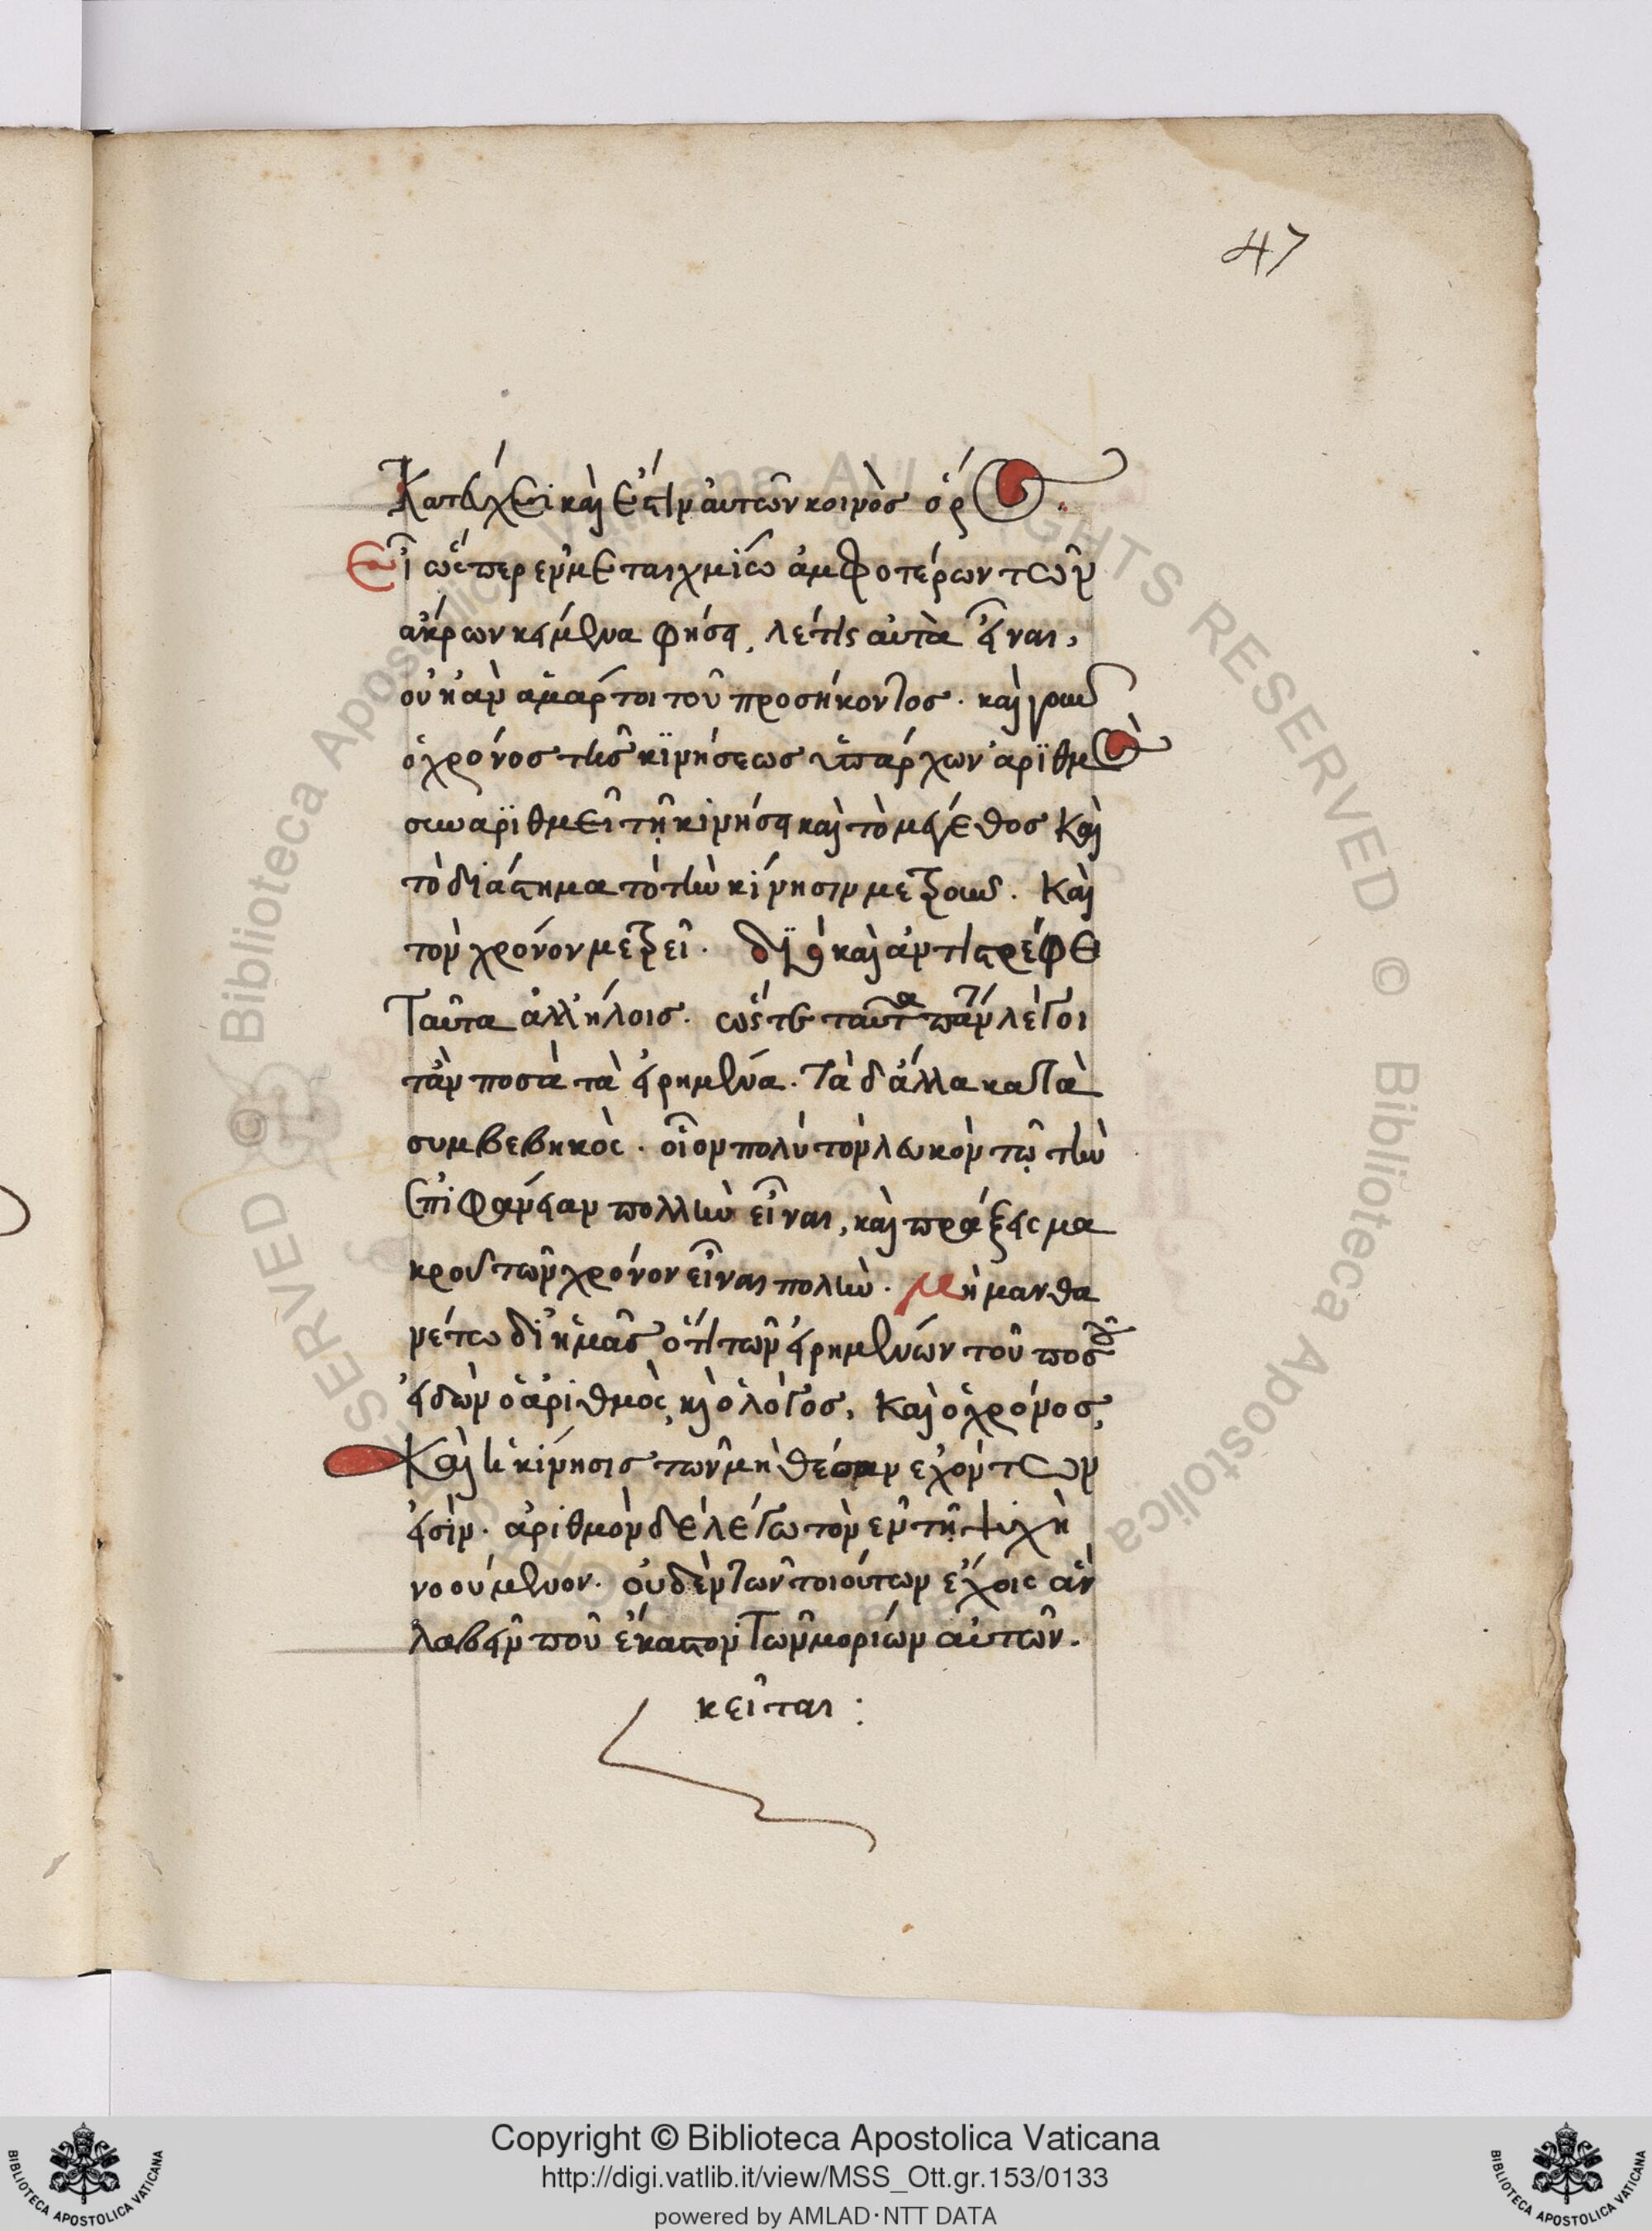 47
Κατέχει καὶ ἔστιν αὐτῶν κοινὸς ὅρος.
Εἰ ὥσπερ ἐν μεταιχμίω ἀμφοτέρων τῶν
ἄκρων κείμενα φήσει, λέ τις αὐτὰ εἶναι,
οὐκ ἂν ἁμάρτοι τοῦ προσήκοντος. καὶ γοῦν
ὁ χρόνος τῆς κϊνήσεως ὑπάρχων ἀρϊθμὸς
συναρϊθμεῖ τῇ κινήσει καὶ τὸ μέγεθος Καὶ
τὸ διάστημα τὸ τὴν κίνησιν μετροῦν. Καὶ
τὸν χρόνον μετρεῖ. δϊὸ καὶ ἀντιστρέφε
Ταῦτα ἀλλήλοις. ὥστε ταῦτα πάντα λέγοι
τἂν ποσὰ τὰ εἰρημένα. Τὰ δ' ἄλλα κατὰ
συμβεβηκὸς. οἷον πολύ τον λευκὸν τῷ τὴν
ἐπιφάνειαν πολλὴν εἶναι, καὶ πράξεις μα
κροῦ τῶν χρόνον εἶναι πολὺν. Μὴ μανθα
νέτω δι' ἡμᾶς ὅτι τῶν εἰρημένων τοῦ ποσοῦ
εἰδῶν ὁ ἀριθμὸς, κὶ ὁ λόγος, Καὶ ὁ χρόνος,
Καὶ ἡ κίνησις τῶν μὴ θέσιν ἐχόντων
εἰσὶν. ἀριθμὸν δὲ λέγω τὸν ἐν τῇ ψυχῆ
νοούμενον. οὐδὲν τῶν τοιούτων ἔχοις ἂν
λαβεῖν ποῦ ἕκαστον Τῶν μορίων αὐτῶν.
κεῖται :
Copyright © Biblioteca Apostolica Vaticana
http://digi.vatlib.it/view/MSS_Ott.gr.153/0133
powered by AMLAD·NTT DATA
BIBLIOTECA APOSTOLICA VATICANA
BIBLIOTECA APOSTOLICA VATICANA